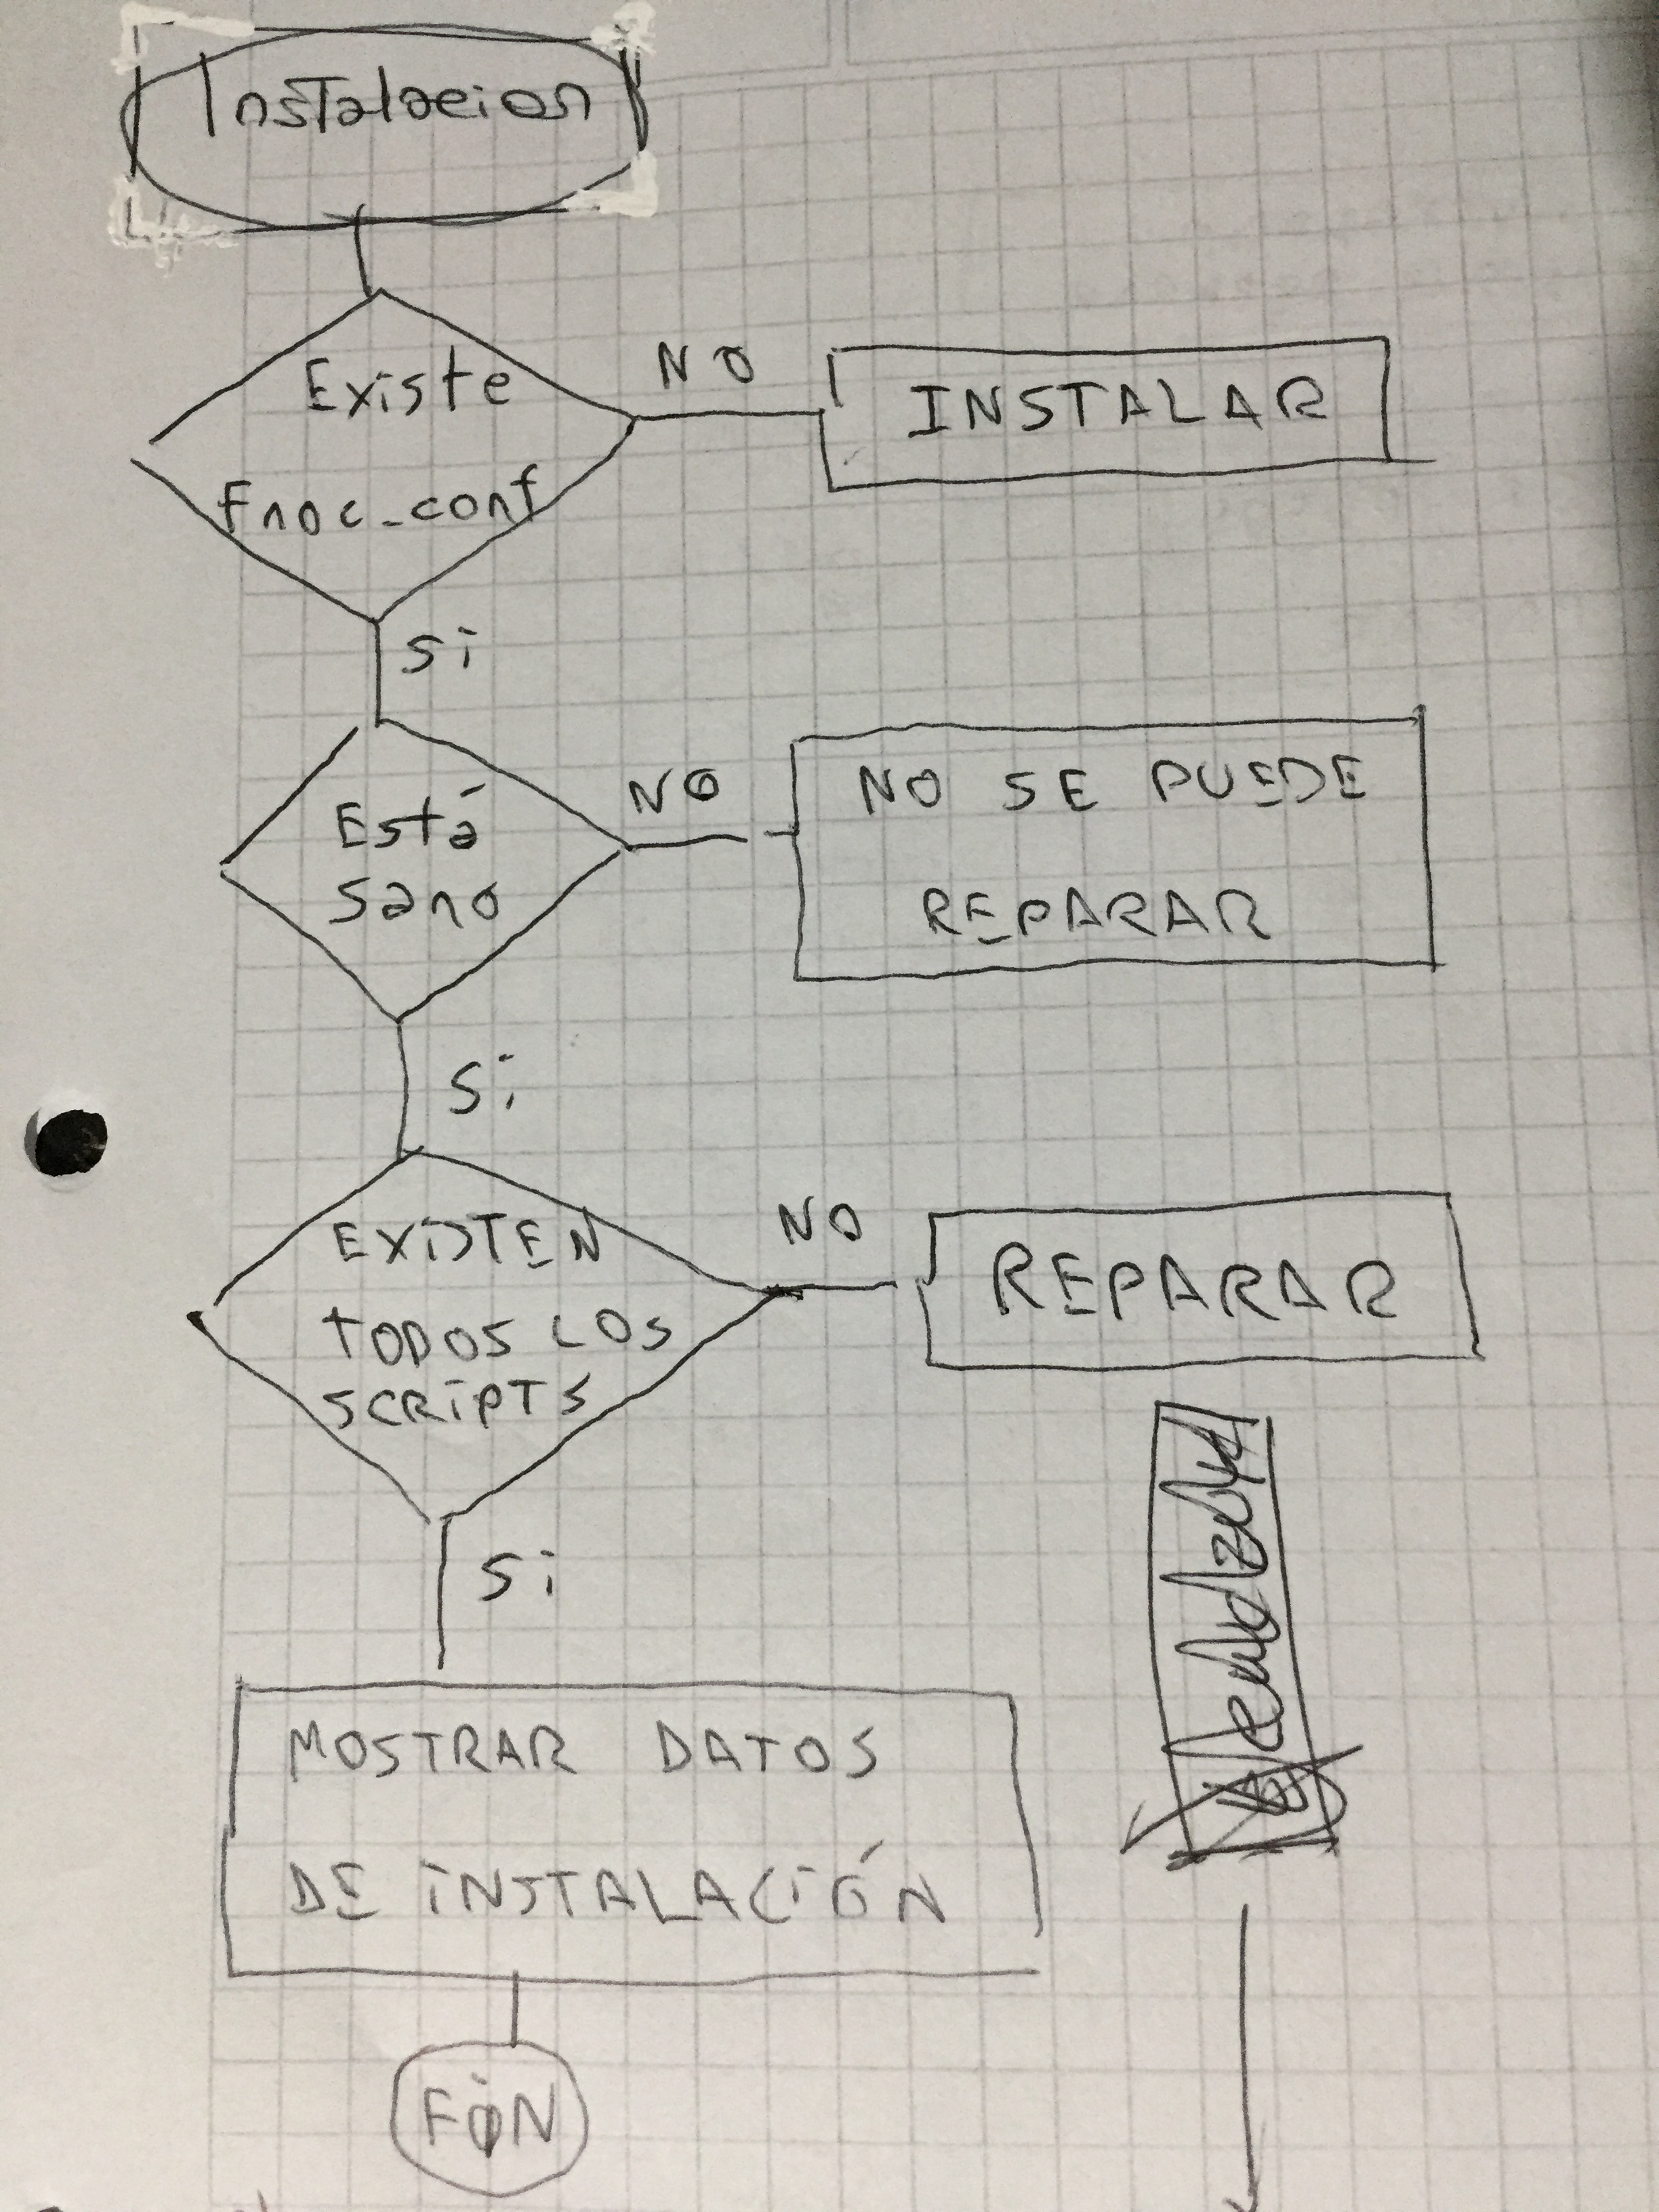 Instalacion
Existe
NO
INSTALAR
fnoc_conf
si
Está
sano
NO
NO SE PUEDE
REPARAR
Si
EXISTEN
TODOS LOS
SCRIPTS
NO
REPARAR
Si
MOSTRAR DATOS
DE INSTALACIÓN
FIN